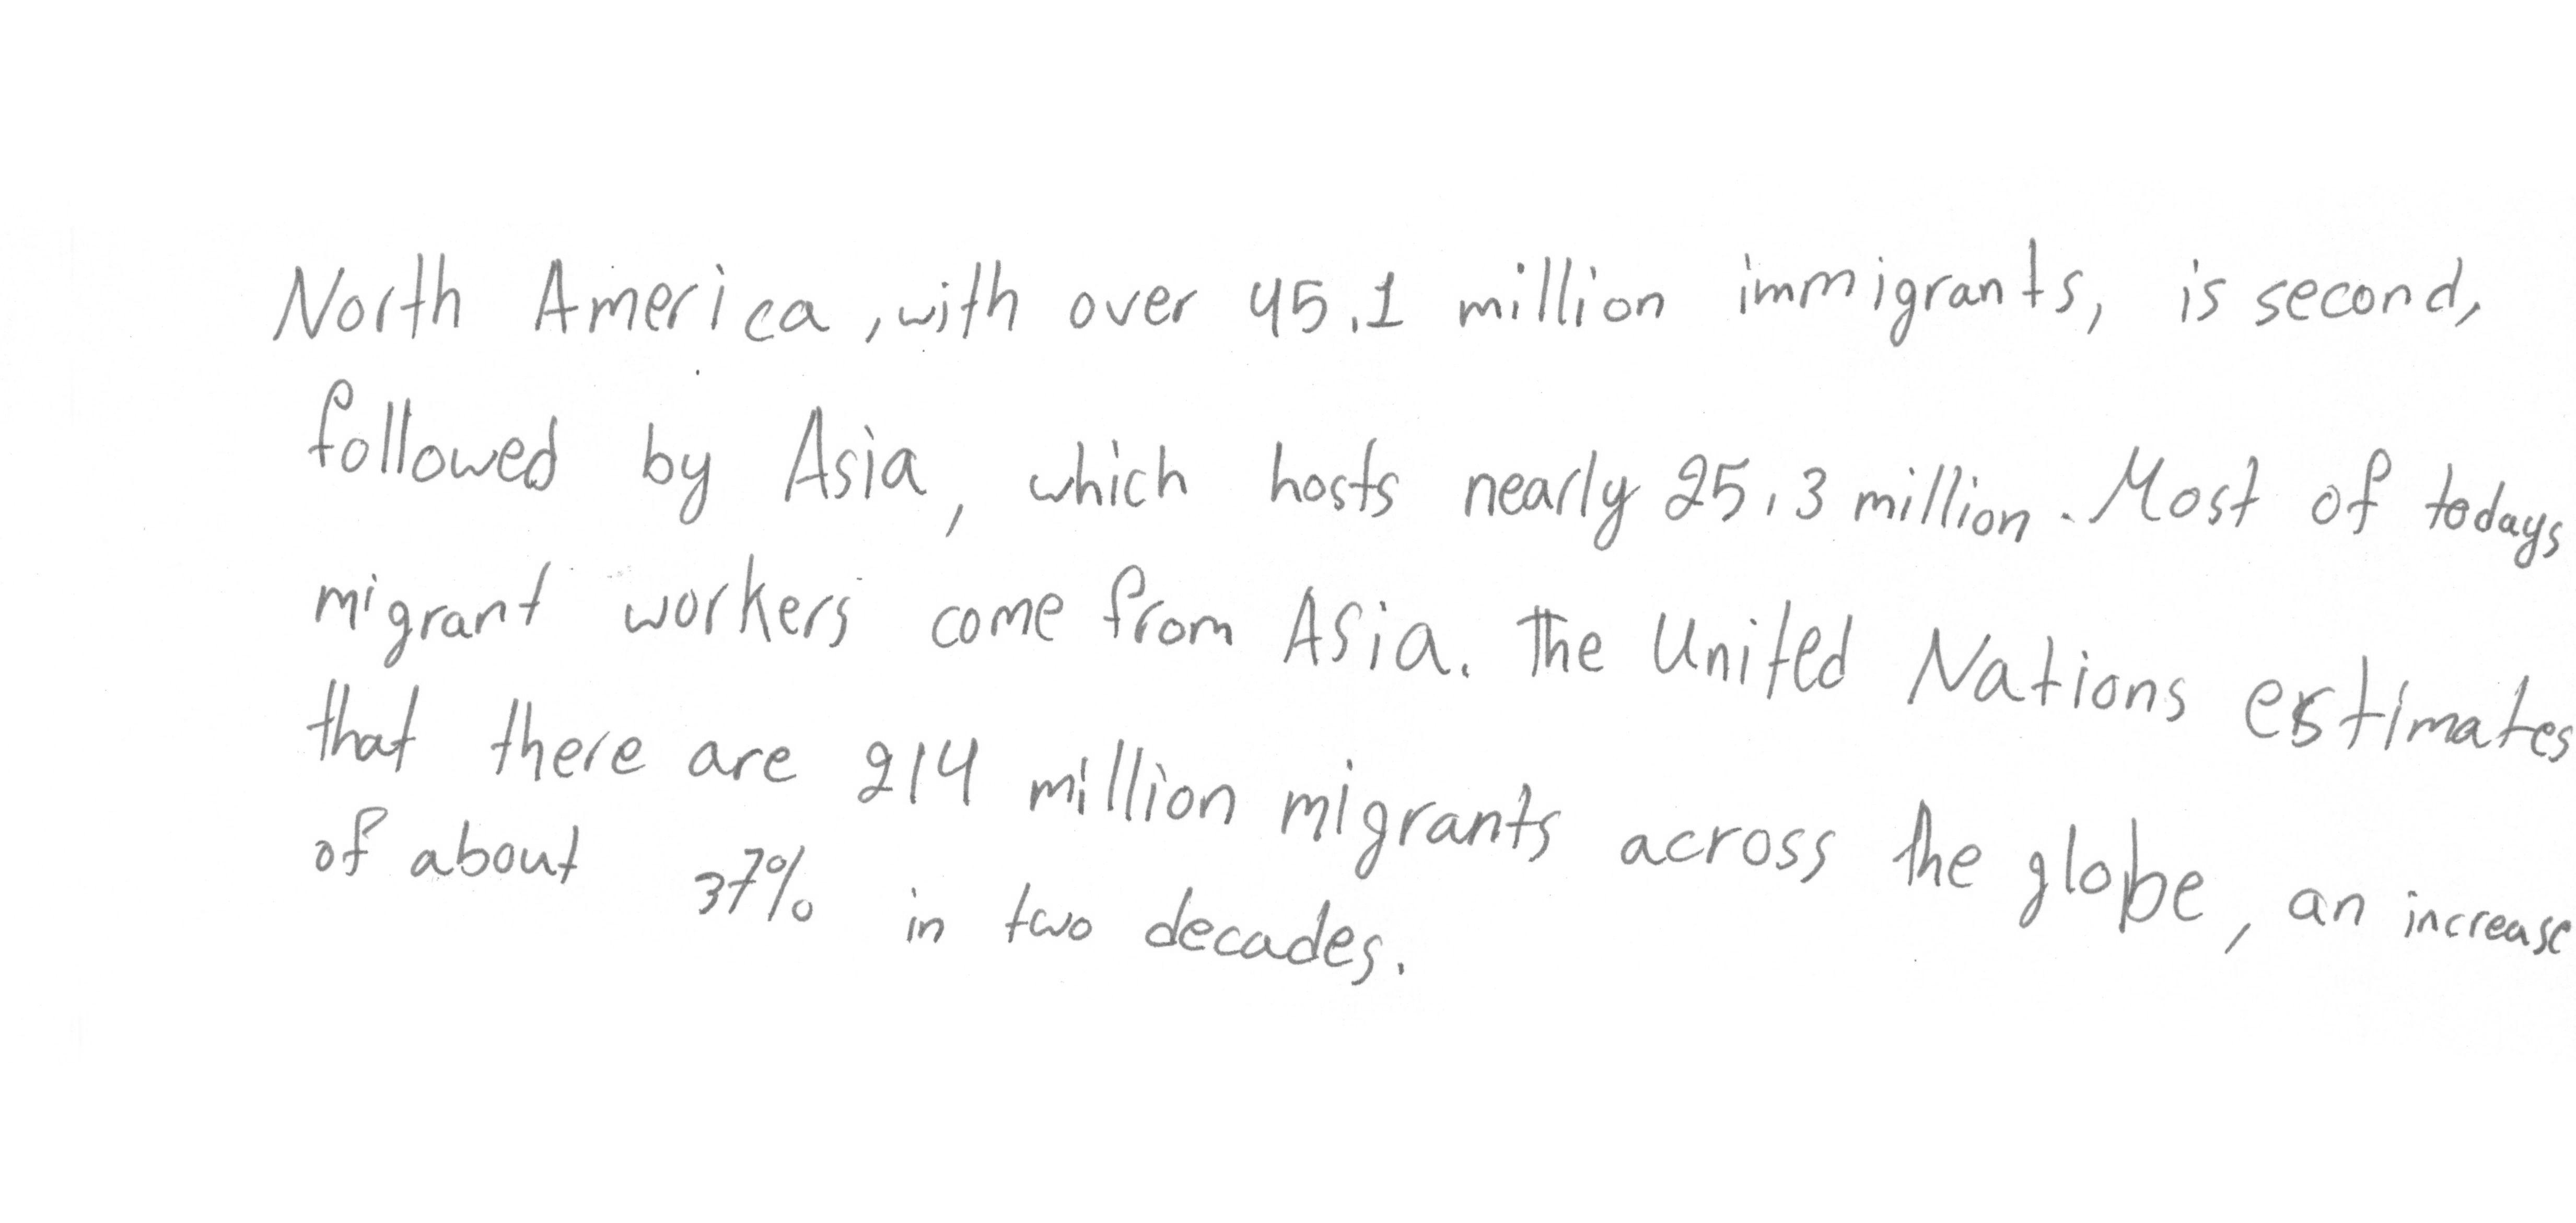 North America, with over 45.1 million immigrants, is second,
followed by Asia, which hosts nearly 25.3 million. Most of todays
migrant workers come from Asia. The United Nations estimates
that there are 214 million migrants across the globe, an increase
of about 37% in two decades.